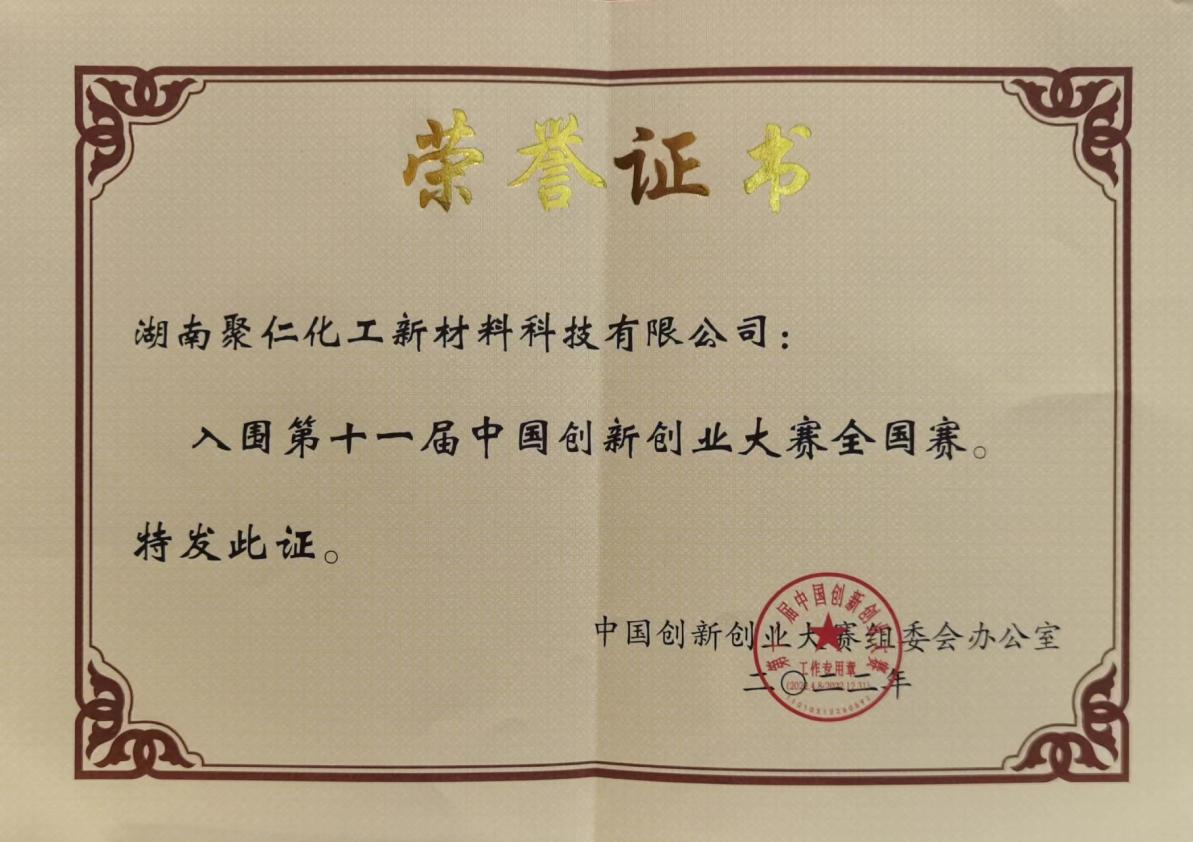 荣誉证书
湖南聚仁化工新材料科技有限公司：
入围第十一届中国创新创业大赛全国赛。
特发此证。
中国创新创业大赛组委会办公室
二〇二二年
第十一届中国创新创业大赛
工作专用章